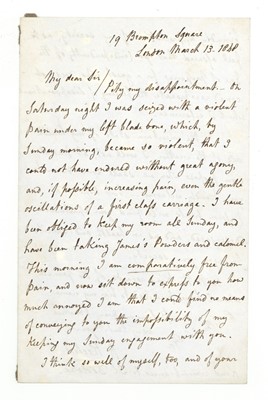 19 Brompton Square
London March 13. 1848
My dear Sir/
Pity my disappointment... On
Saturday night I was seized with a violent
pain under my left blade bone, which, by
Sunday morning, became so violent, that I
could not have endured without great agony,
and, if possible, increasing pain, even the gentle
oscillations of a first class carriage. I have
been obliged to keep my room all Sunday, and
have been taking James's Powders and calomel.
This morning I am comparatively free from
pain, and now sit down to express to you how
much annoyed I am that I could find no means
of conveying to you the impossibility of my
keeping my Sunday engagement with you.
I think so well of myself, too, and of your